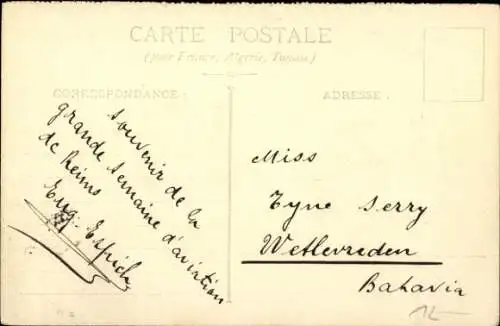 CARTE POSTALE
(pour France, Algérie, Tunisie)
CORRESPONDANCE :
ADRESSE :
souvenir de la
grande semaine d'aviation
de Reims
Eug.
Miss
Tyne Serry
Wetlevreden
Batavia